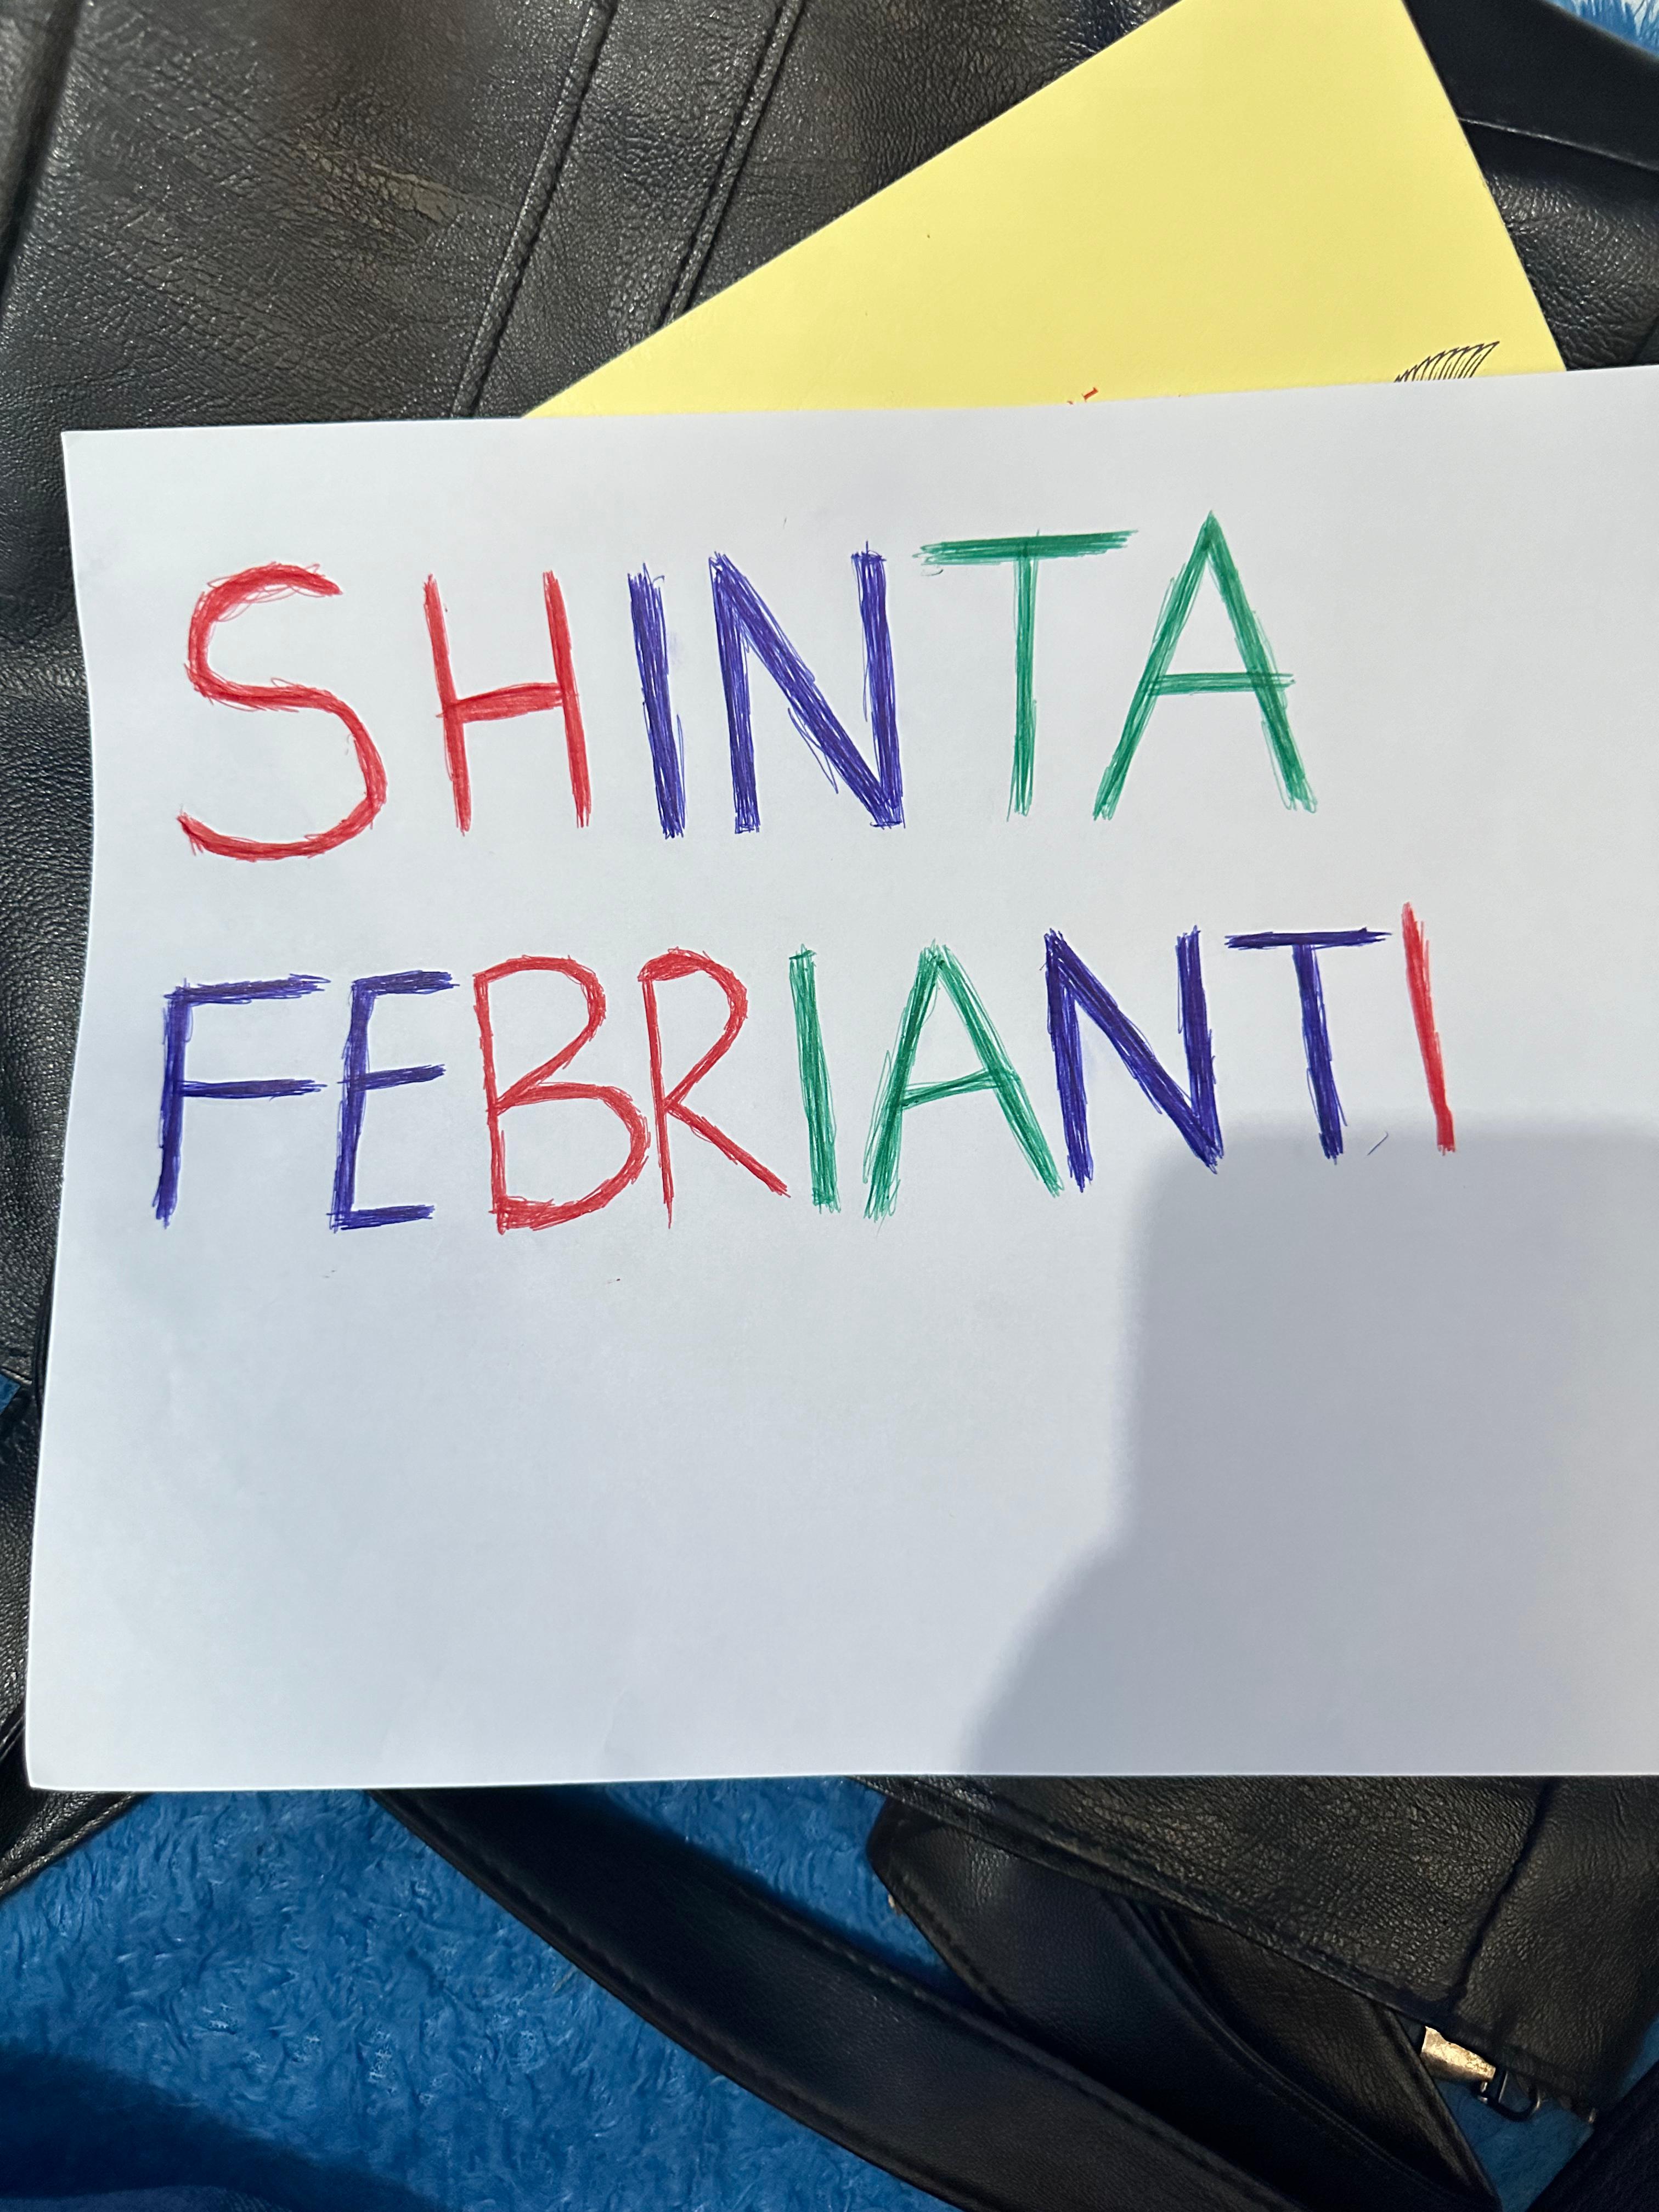 SHINTA
FEBRIANTI